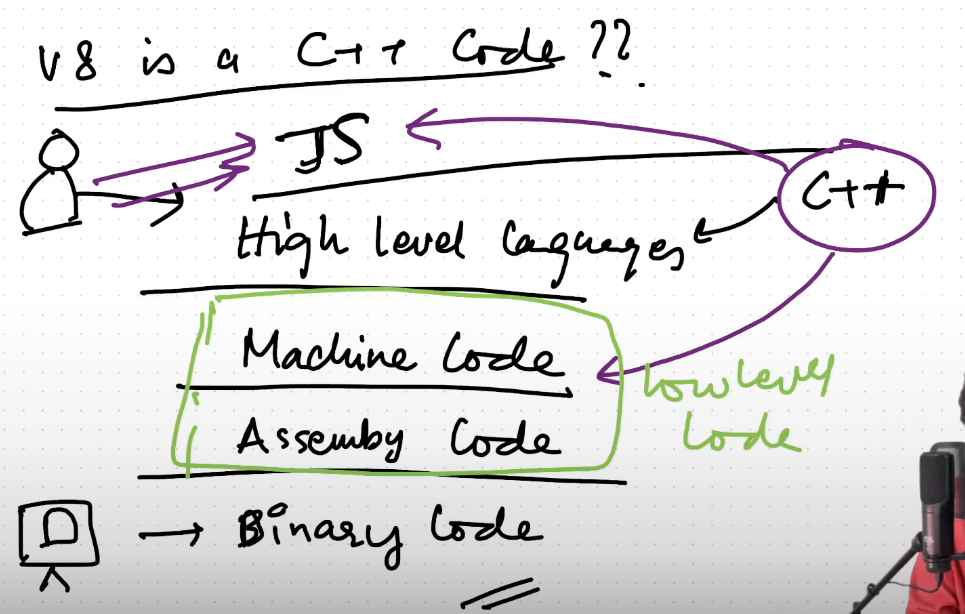 V8 is a C++ Code ??
JS
C++
High level languages
Machine Code
Low level
Code
Assemby Code
Binary Code